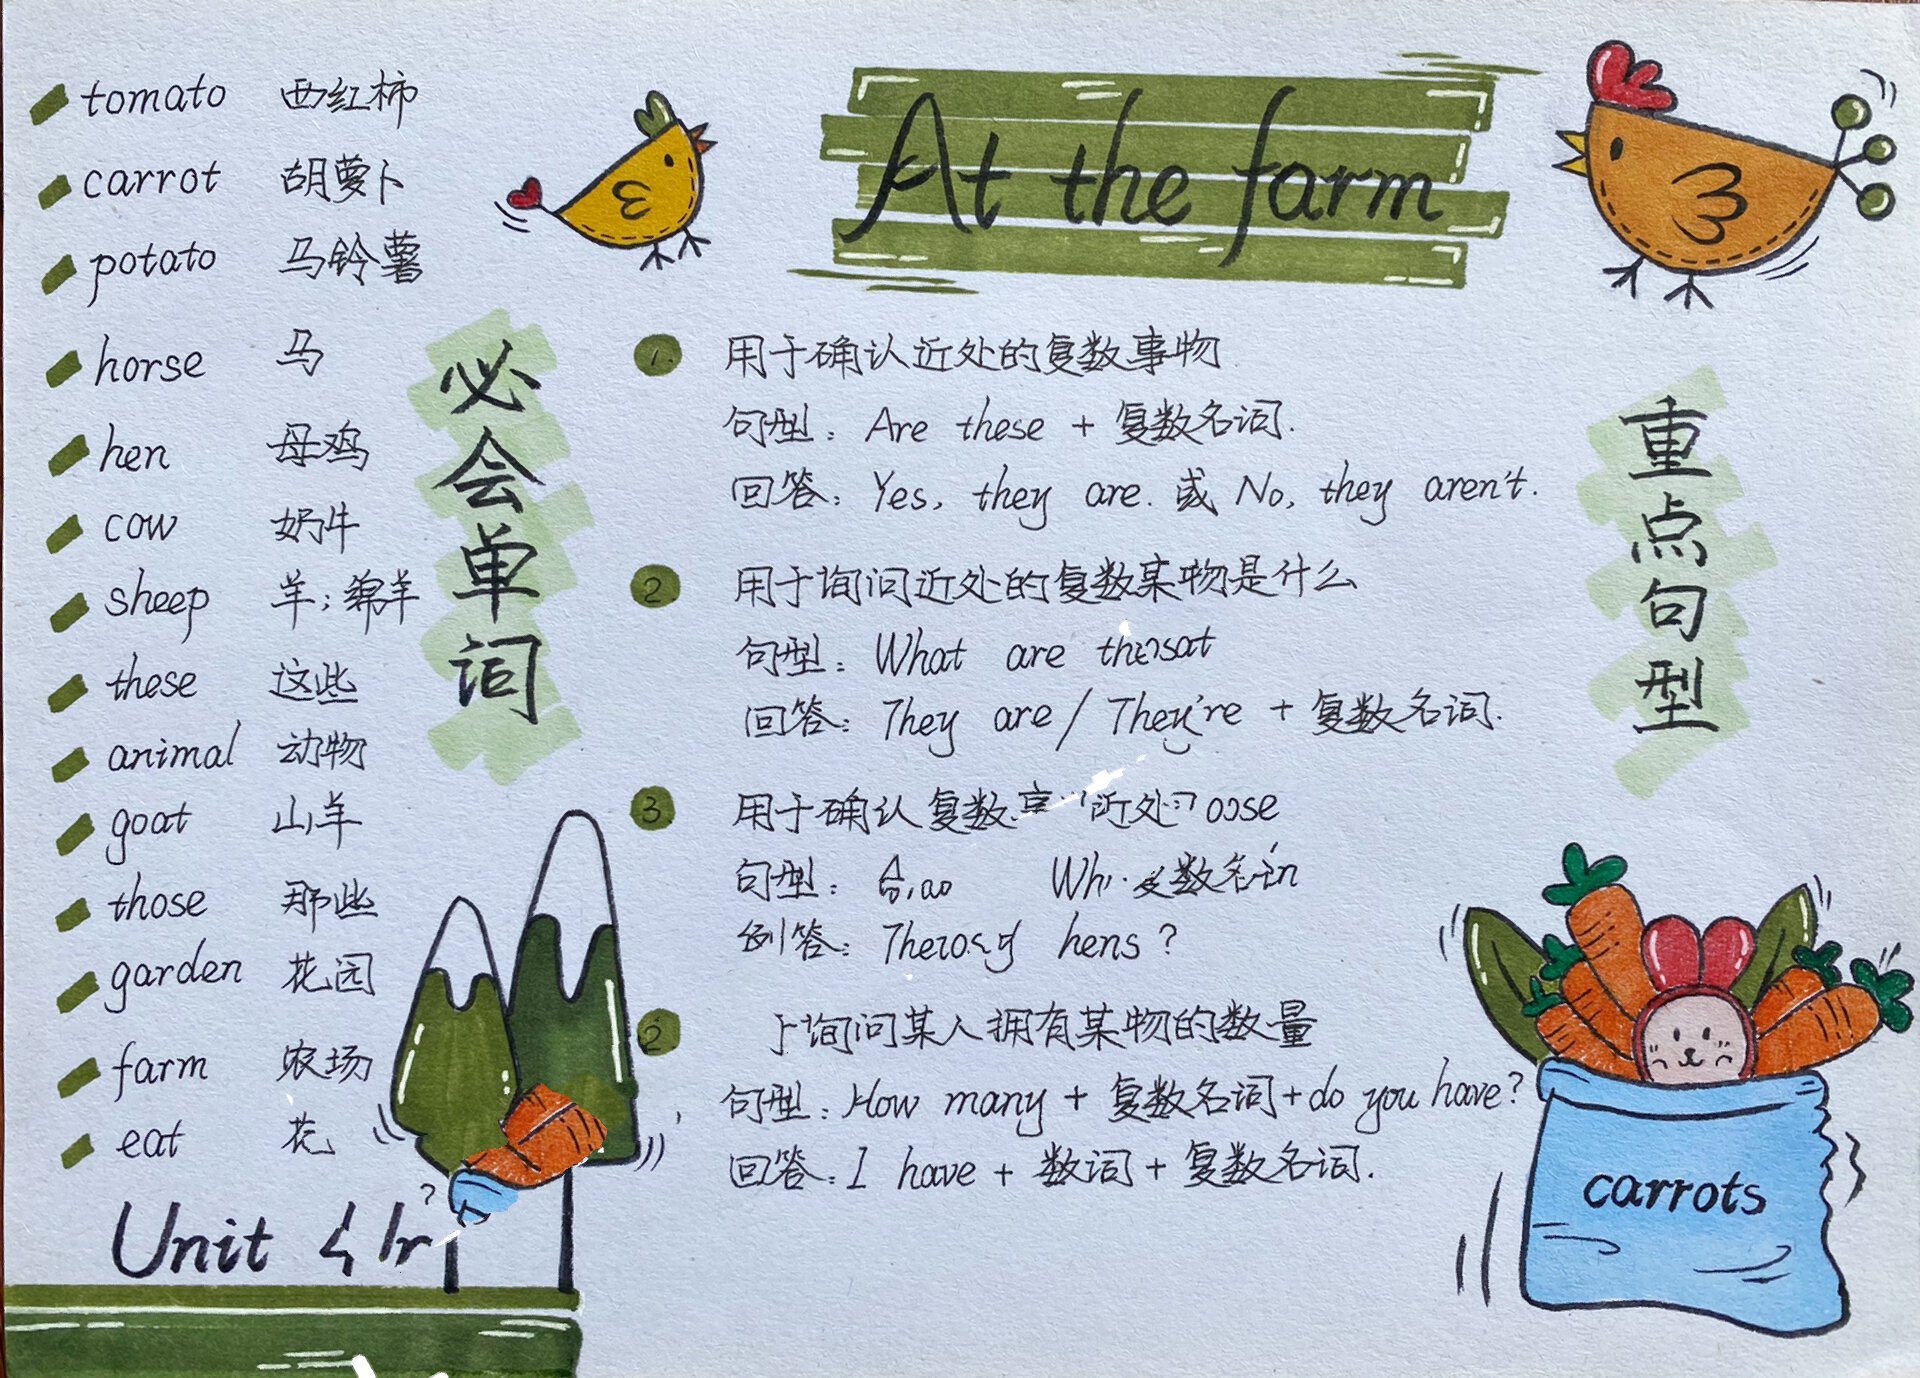 At the farm
必会单词
tomato 西红柿
carrot 胡萝卜
potato 马铃薯
horse 马
hen 母鸡
cow 奶牛
sheep 羊；绵羊
these 这些
animal 动物
goat 山羊
those 那些
garden 花园
farm 农场
eat 花
Unit
重点句型
1. 用于确认近处的复数事物
句型：Are these + 复数名词.
回答：Yes, they are. 或 No, they aren't.
2. 用于询问近处的复数某物是什么
句型：What are
回答：They are / They're + 复数名词.
3 用于确认复数 近处
句型： 数名
答： hens ?
2 询问某人拥有某物的数量
句型：How many + 复数名词 + do you have?
回答：I have + 数词 + 复数名词.
carrots